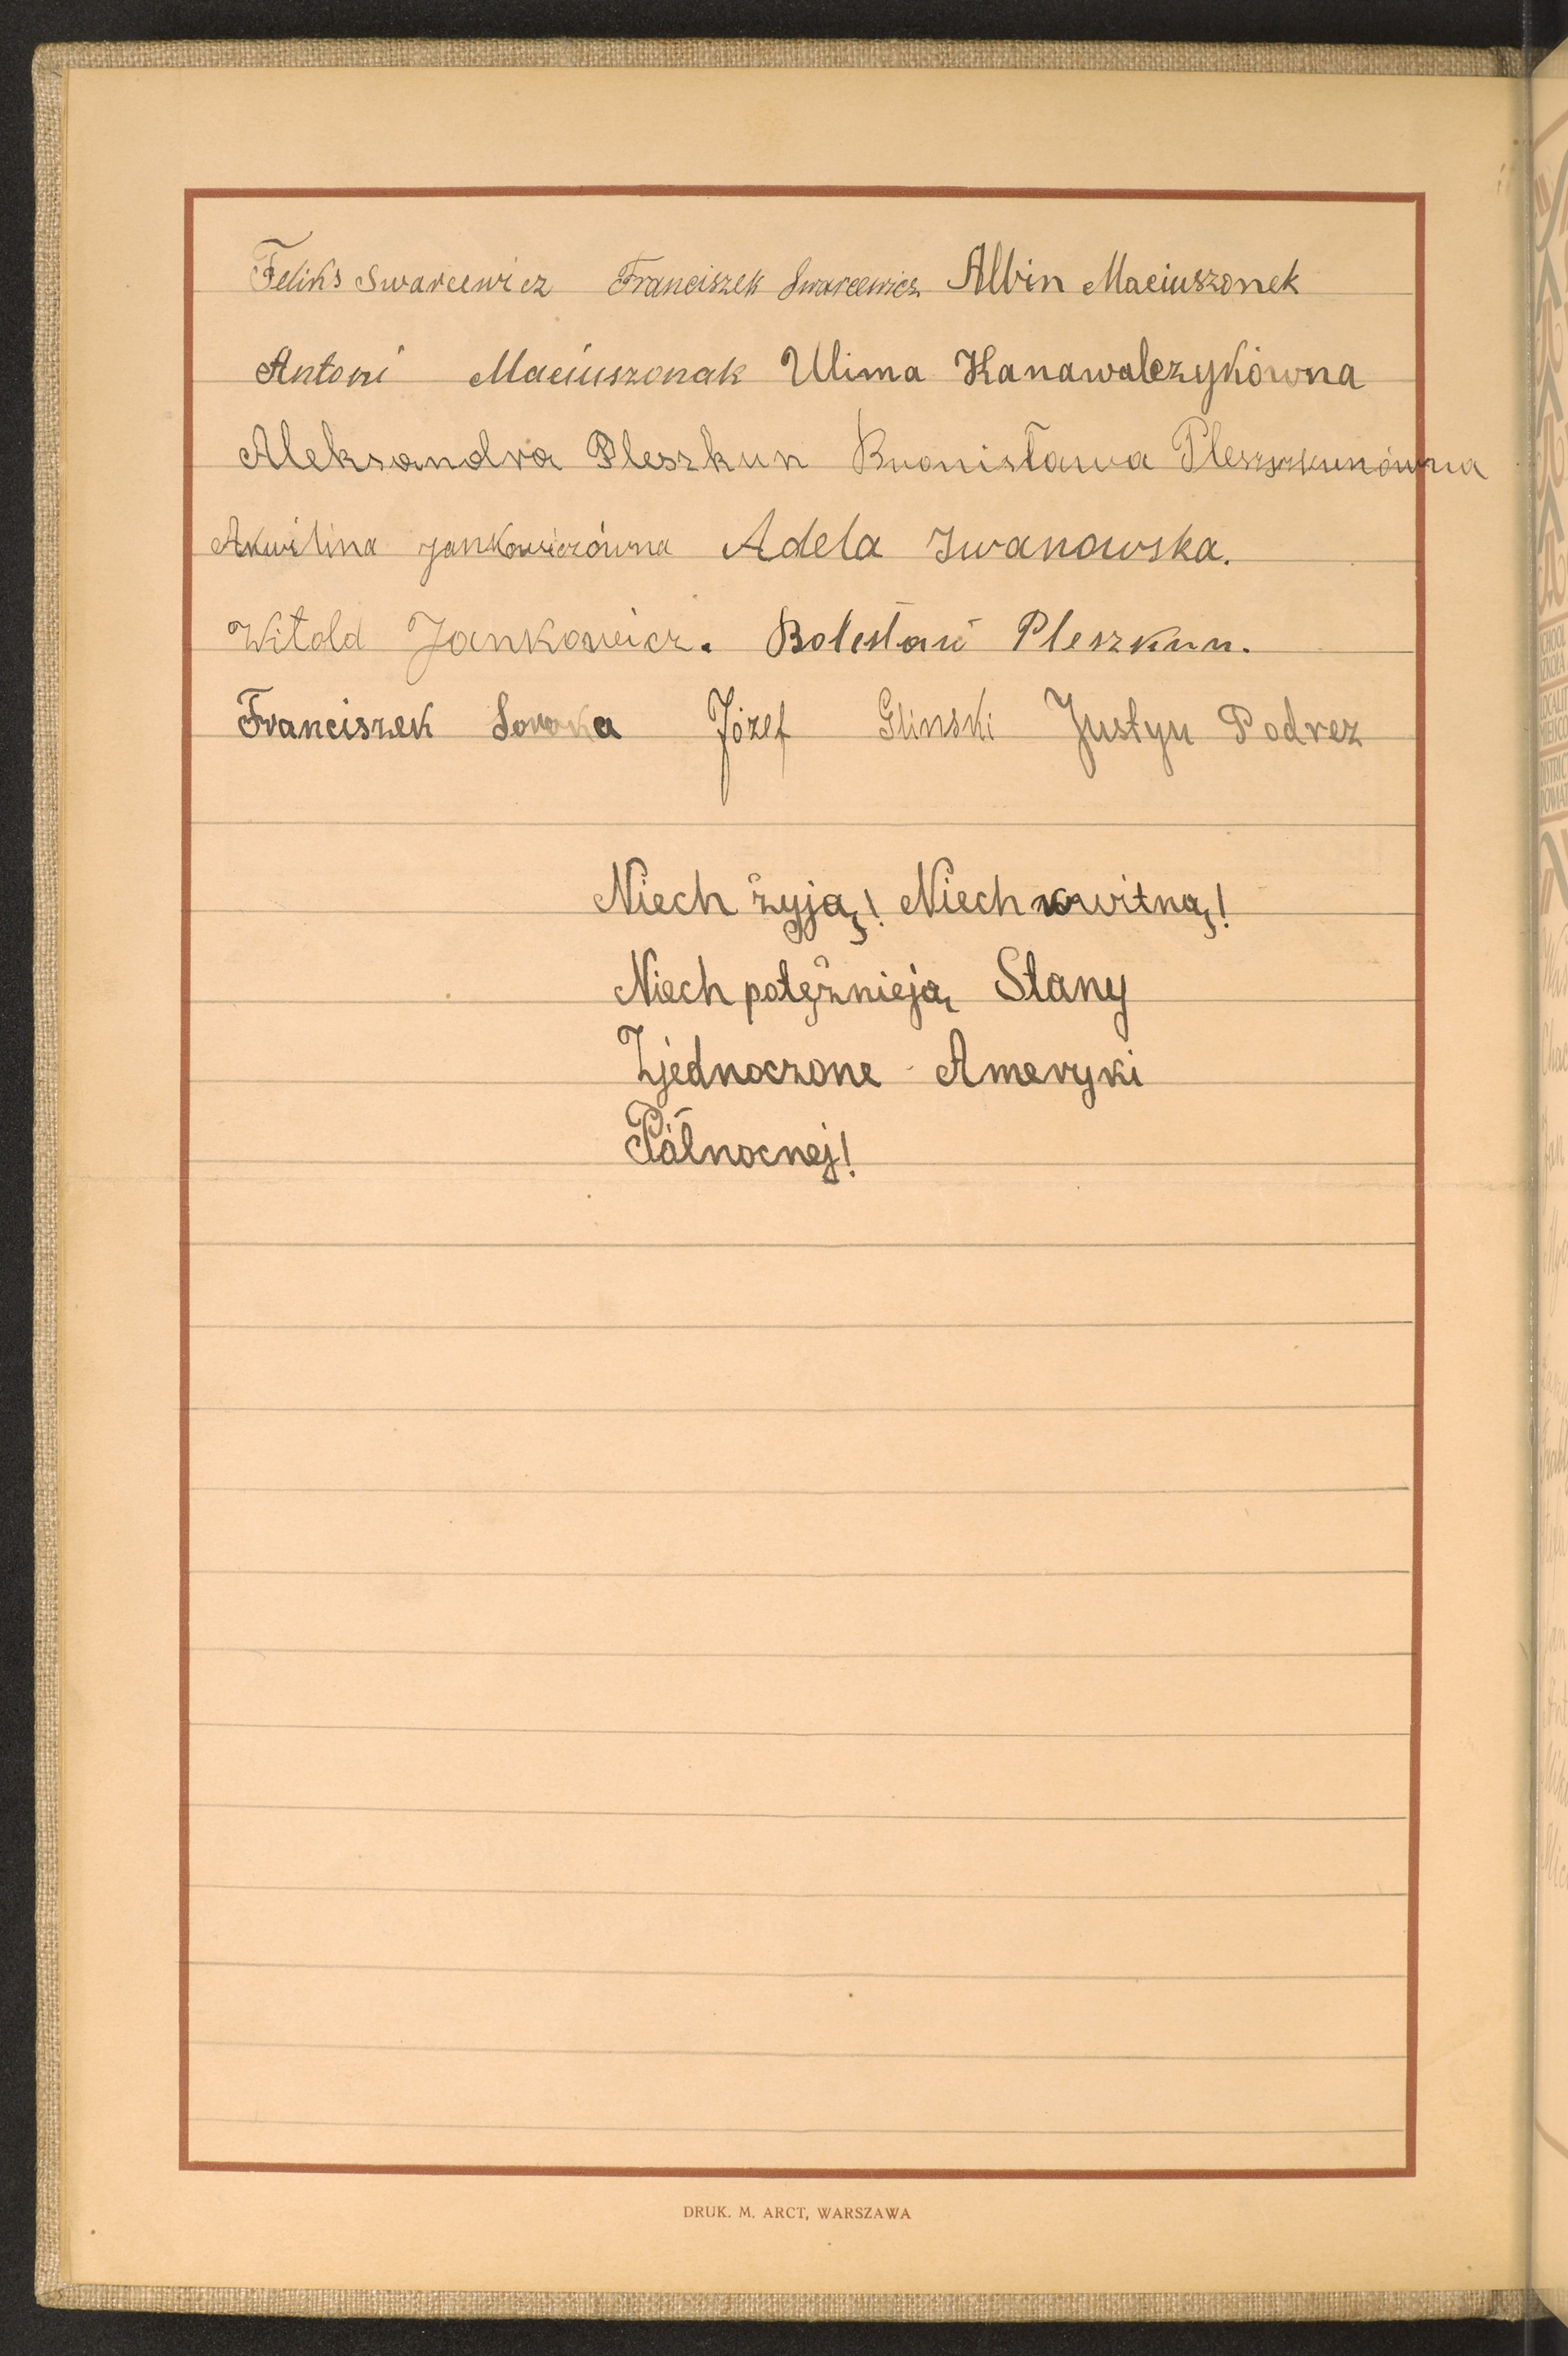 Feliks Swarcewicz Franciszek Swarcewicz Albin Maciuszonek
Antoni Maciuszonak Ulima Kanawalczykówna
Aleksandra Pleszkun Bronisława Pleszkunówna
Akwilina Jankowiczówna Adela Iwanowska.
Witold Jankowicz. Bolesław Pleszkun.
Franciszek Soroka Józef Glinski Justyn Podrez
Niech żyją! Niech kwitną!
Niech potężnieją Stany
Zjednoczone Ameryki
Północnej!
DRUK. M. ARCT, WARSZAWA